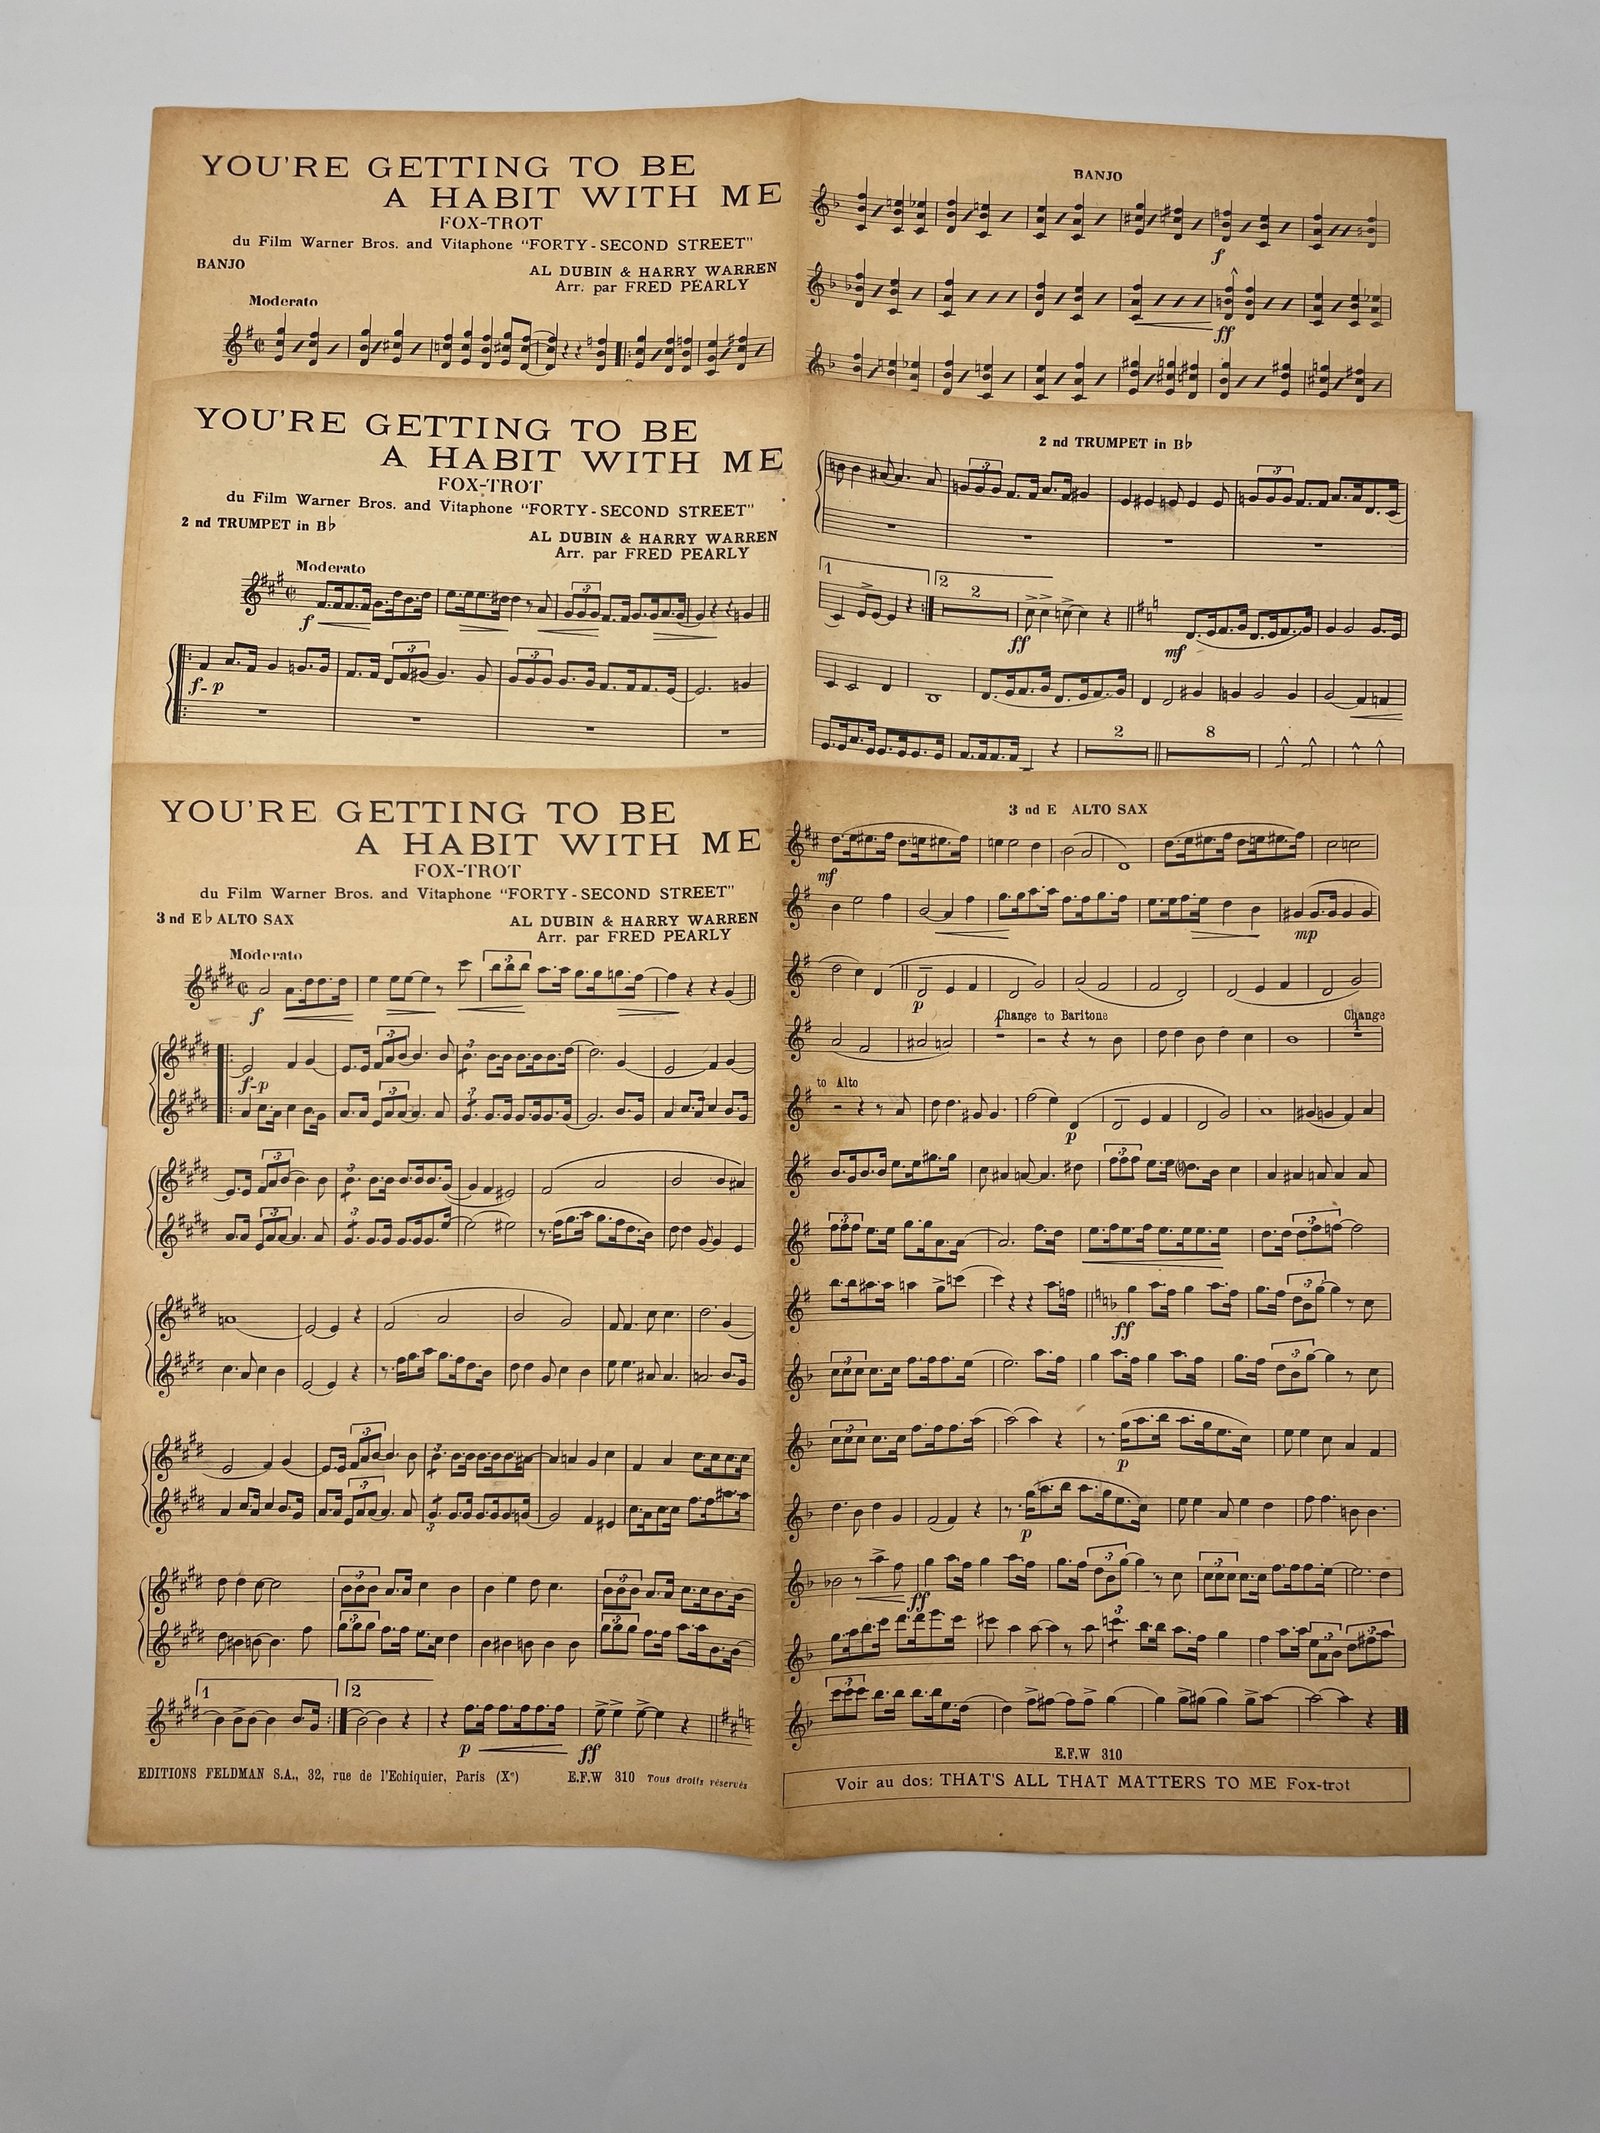 YOU'RE GETTING TO BE
A HABIT WITH ME
FOX-TROT
du Film Warner Bros. and Vitaphone "FORTY-SECOND STREET"
BANJO
AL DUBIN & HARRY WARREN
Arr. par FRED PEARLY
Moderato
BANJO
f
ff
YOU'RE GETTING TO BE
A HABIT WITH ME
FOX-TROT
du Film Warner Bros. and Vitaphone "FORTY-SECOND STREET"
2 nd TRUMPET in B♭
AL DUBIN & HARRY WARREN
Arr. par FRED PEARLY
Moderato
3
f
3 3
f-p
2 nd TRUMPET in B♭
3 3
1 2
2
ff mf
2 8
YOU'RE GETTING TO BE
A HABIT WITH ME
FOX-TROT
du Film Warner Bros. and Vitaphone "FORTY-SECOND STREET"
3 nd E♭ ALTO SAX
AL DUBIN & HARRY WARREN
Arr. par FRED PEARLY
Moderato
3
f
3 3
f-p
3 3
3 3
3 3
3 3
3 3
3 3
3 3
1 2
p ff
EDITIONS FELDMAN S.A., 32, rue de l'Echiquier, Paris (Xe) E.F.W 310 Tous droits réservés
3 nd E ALTO SAX
mf
mp
p
Change to Baritone Change
1 1
to Alto
p
3
3 3
3
ff
3 3
3
p
p
3 3
ff
3 3 3
3
E.F.W 310
Voir au dos: THAT'S ALL THAT MATTERS TO ME Fox-trot